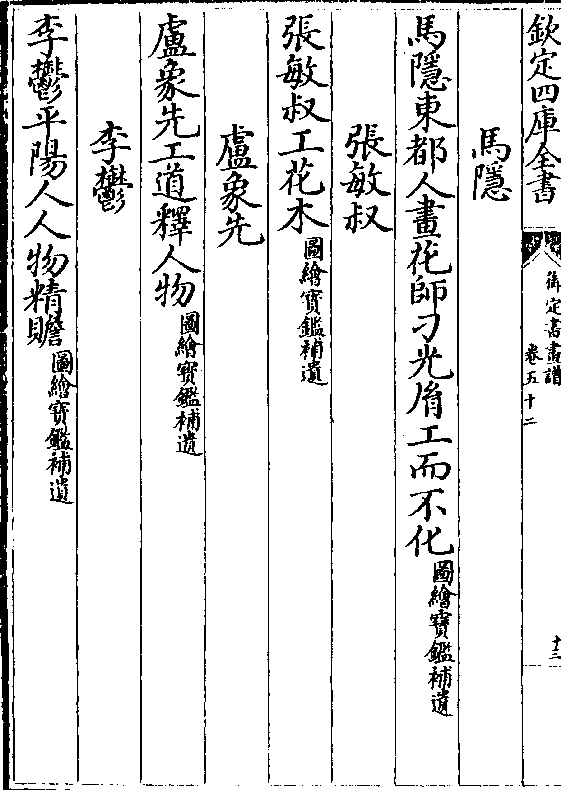 欽定四庫全書
御定書畫譜
卷五十二
十二
馬隱
馬隱東都人畫花師刁光胤工而不化圖繪寶鑑補遺
張敏叔
張敏叔工花木圖繪寶鑑補遺
盧象先
盧象先工道釋人物圖繪寶鑑補遺
李鬱
李鬱平陽人人物精贍圖繪寶鑑補遺